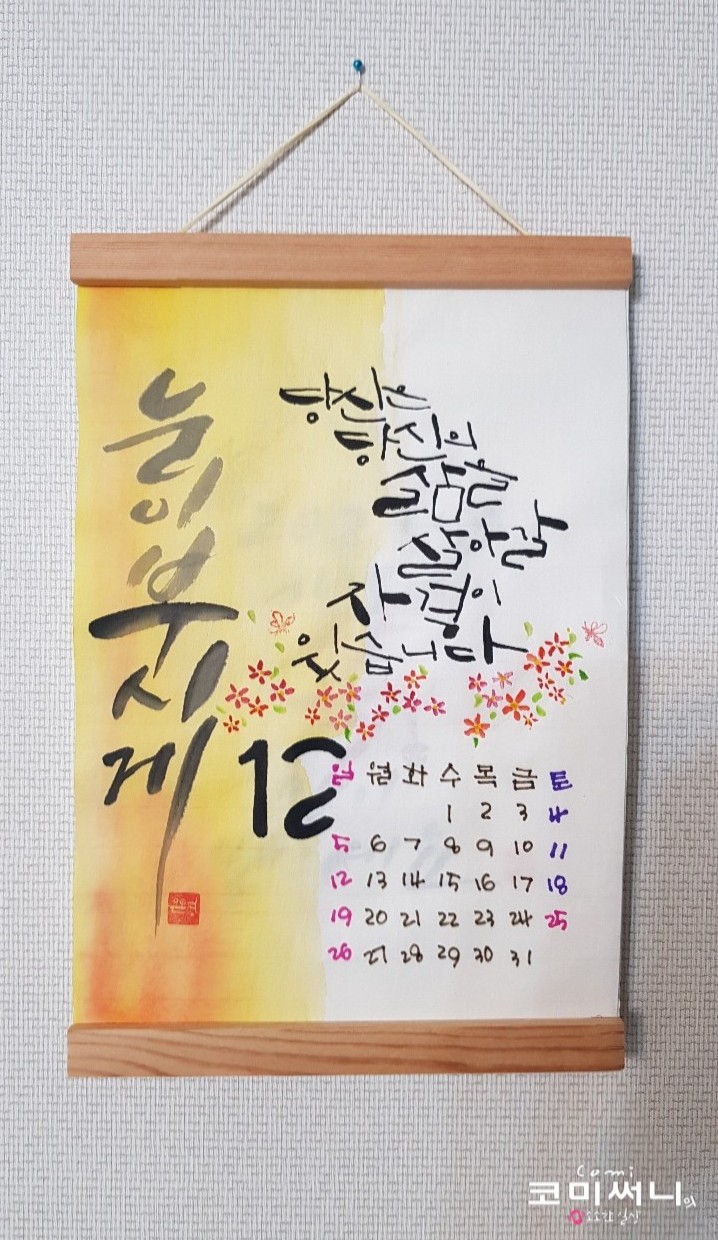 눈이
부
시
게
당신은
당신의
삶을
살아갈
자격이
있습니다
12
일 월 화 수 목 금 토
1 2 3 4
5 6 7 8 9 10 11
12 13 14 15 16 17 18
19 20 21 22 23 24 25
26 27 28 29 30 31
Comi
코미써니의
소소한 일상